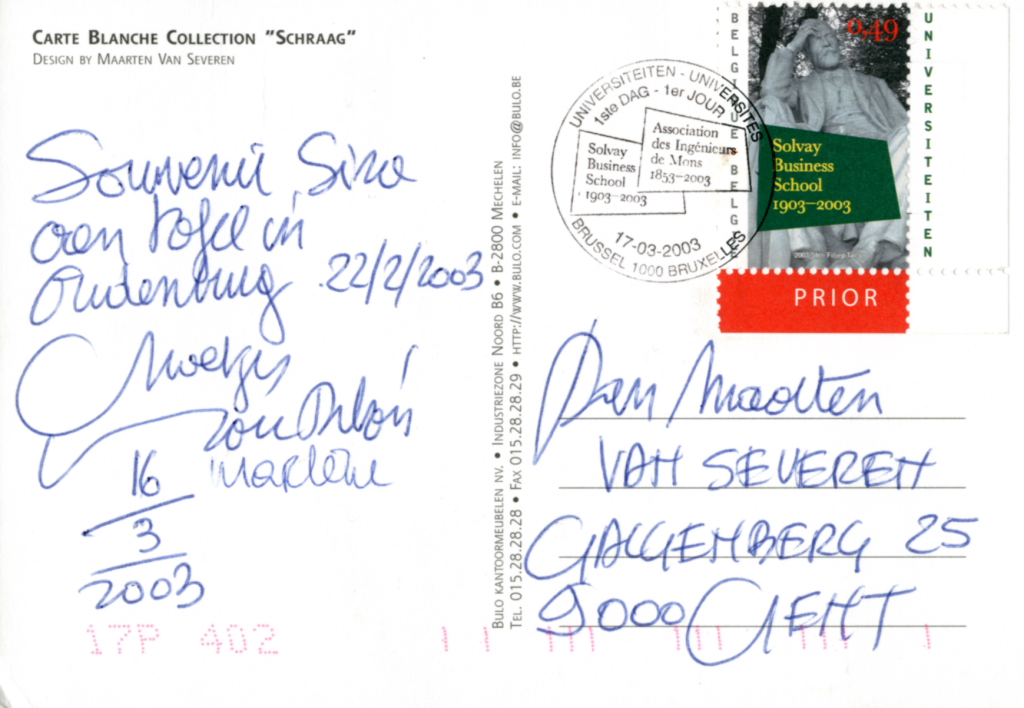 CARTE BLANCHE COLLECTION "SCHRAAG"
DESIGN BY MAARTEN VAN SEVEREN
Souvenir Sira
aan tafel in
Oudenburg 22/2/2003
Marlène
16
3
2003
17P 402
BULO KANTOORMEUBELEN NV. • INDUSTRIEZONE NOORD B6 • B-2800 MECHELEN
TEL. 015.28.28.28 • FAX 015.28.28.29 • HTTP://WWW.BULO.COM • E-MAIL: INFO@BULO.BE
UNIVERSITEITEN - UNIVERSITES
1ste DAG - 1er JOUR
Solvay
Business
School
1903-2003
Association
des Ingénieurs
de Mons
1853-2003
17-03-2003
BRUSSEL 1000 BRUXELLES
BELGIQUE BELGIE
0,49
Solvay
Business
School
1903-2003
UNIVERSITEITEN
PRIOR
Maarten
VAN SEVEREN
GALGENBERG 25
9000 GENT